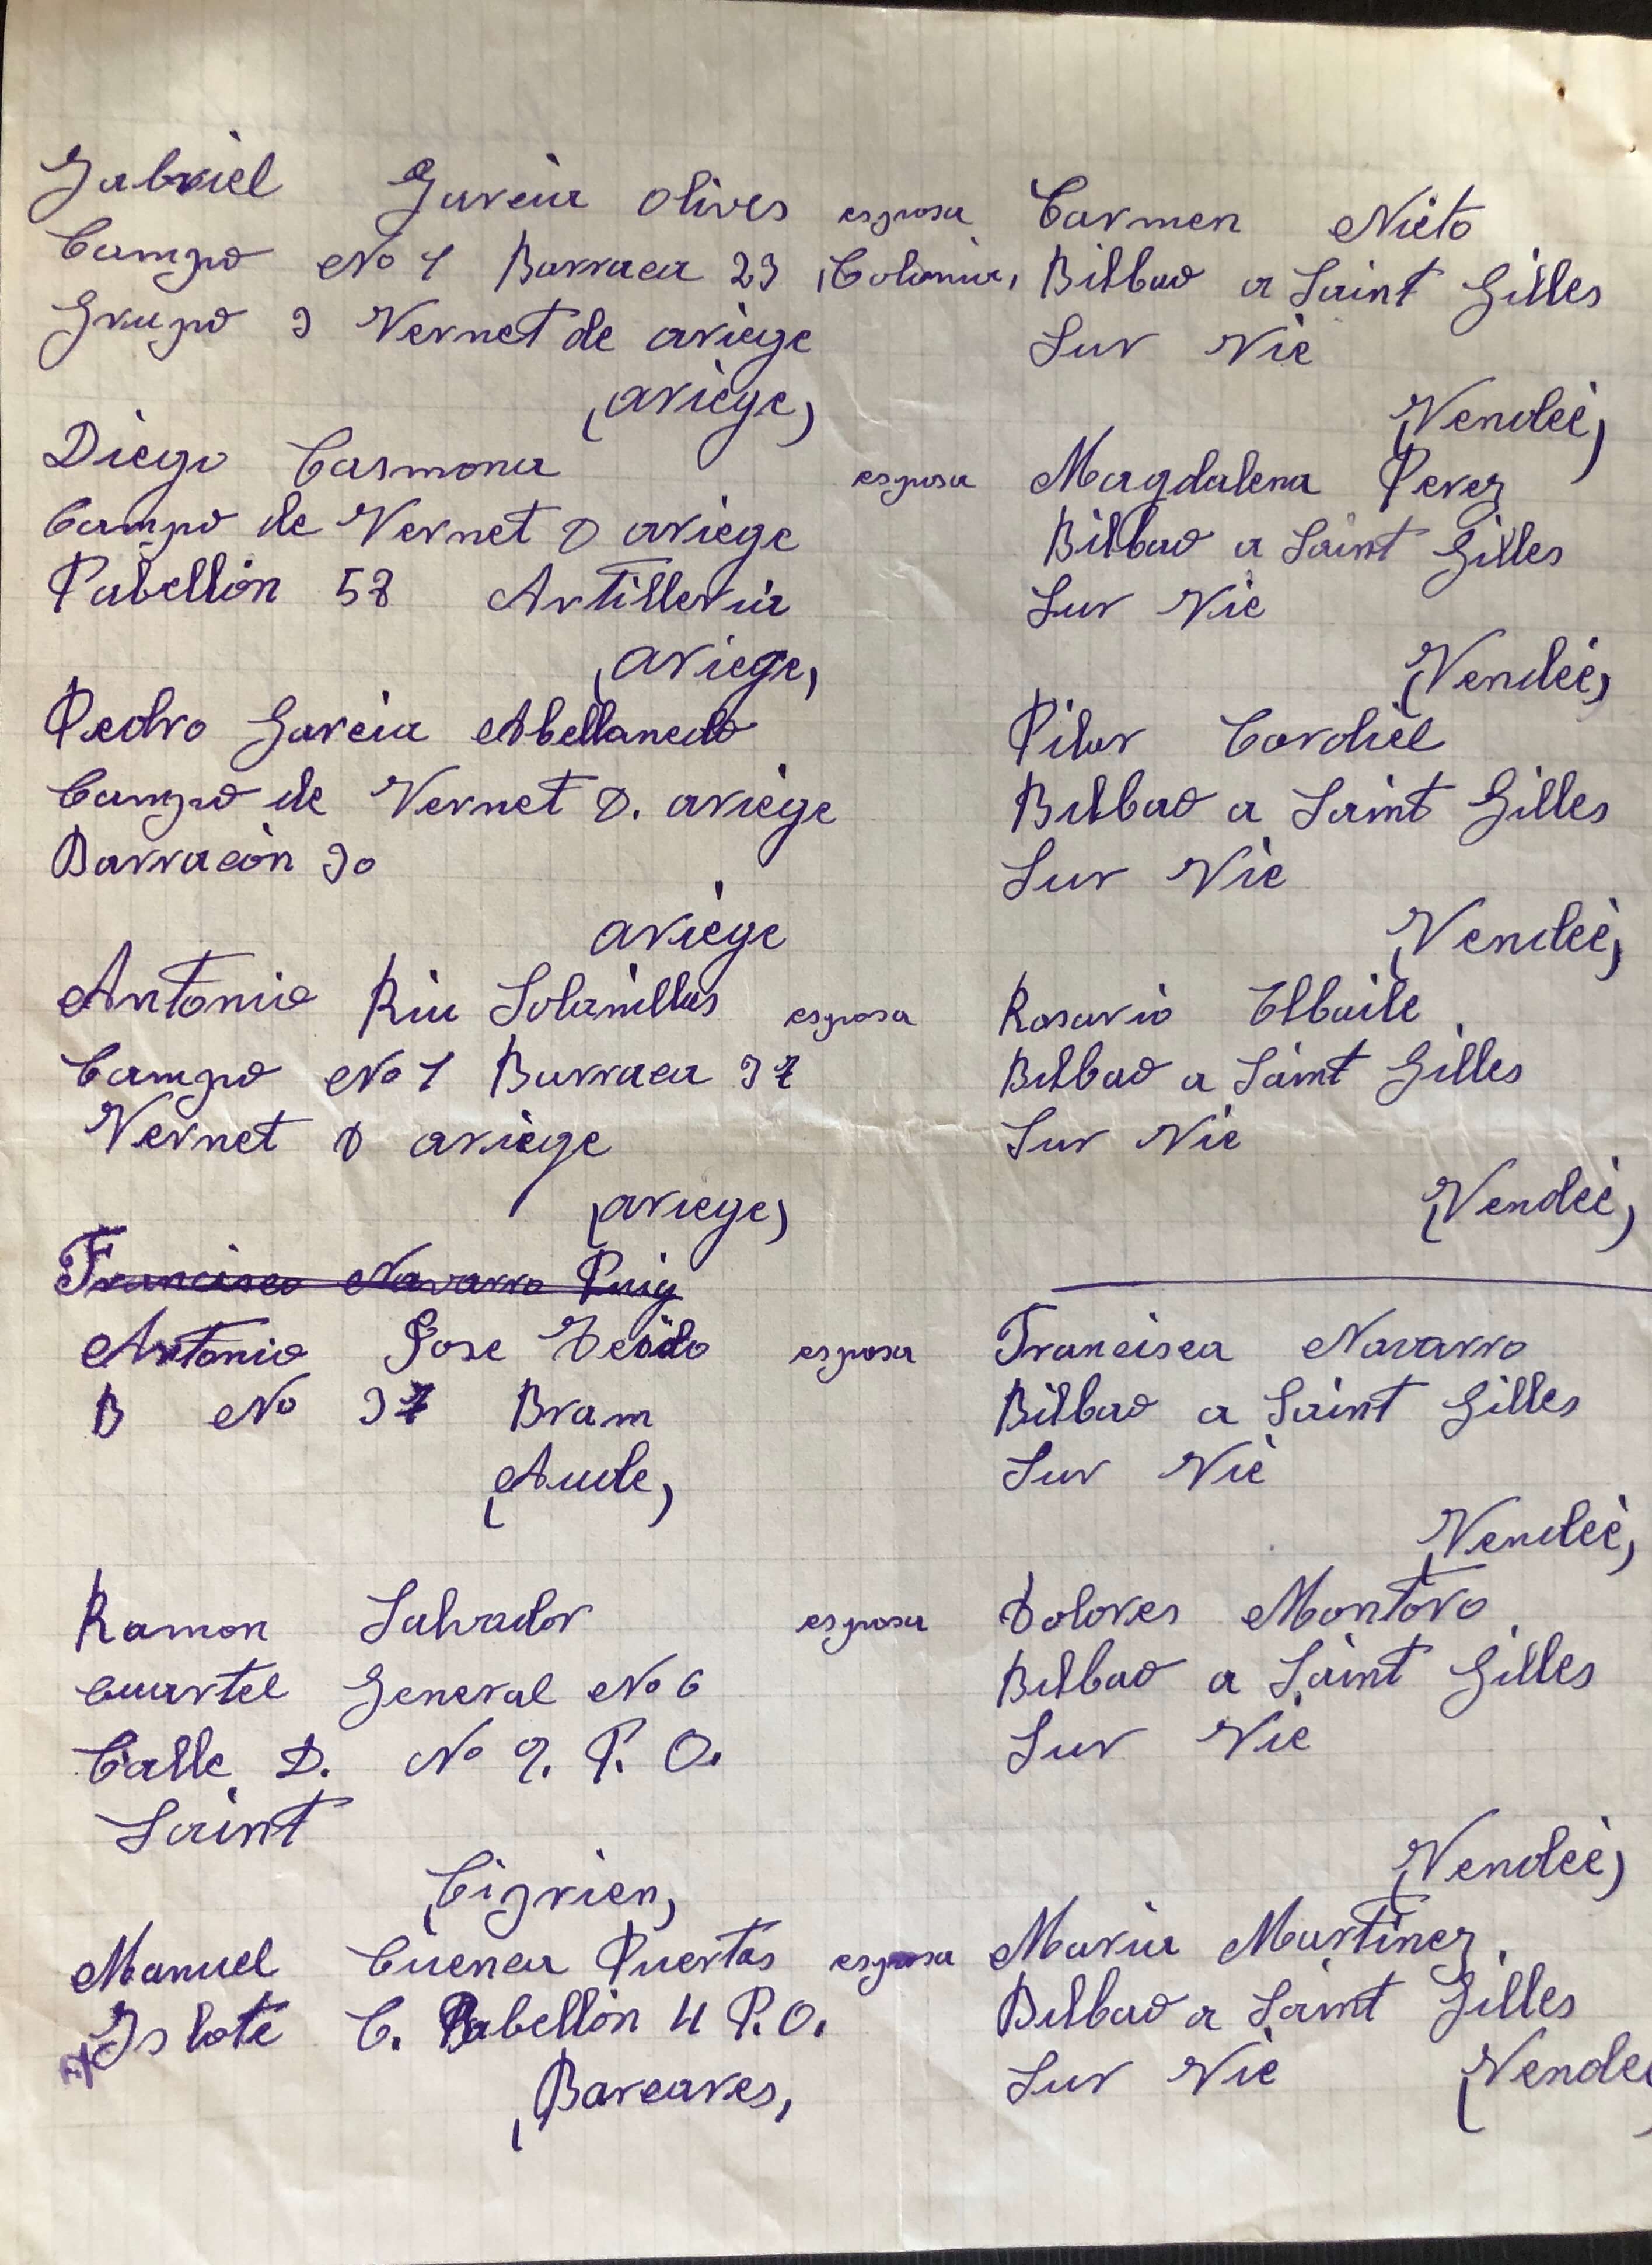 Gabriel Garcia Olives esposa Carmen Nieto
Campo No 1 Barraca 23 (Colonia) Bilbao a Saint Gilles
Grupo 3 Vernet de ariège Sur Vie
(ariège) (Vendeé)
Diego Carmona esposa Magdalena Perez
Campo de Vernet D ariege Bilbao a Saint Gilles
Pabellón 58 Artilleria Sur Vie
(ariege) (Vendeé)
Pedro Garcia Abellanedo Pilar Cordiel
Campo de Vernet D. ariège Bilbao a Saint Gilles
Barracón 30 Sur Vie
ariège (Vendeé)
Antonio Riu Solanillas esposa Rosario
Campo No 1 Barraca 37 Bilbao a Saint Gilles
Vernet D ariège Sur Vie
(ariege) (Vendeé)
Francisco Navarro Puig
Antonio Jose esposa Francisca Navarro
B No 37 Bram Bilbao a Saint Gilles
(Aude) Sur Vie
(Vendeé)
Ramon Salvador esposa Dolores Montoro
Cuartel General No 6 Bilbao a Saint Gilles
Calle D. No 9. P. O. Sur Vie
Saint
(Ciprien) (Vendeé)
Manuel Cuenca Puertas esposa Maria Martinez
Islote C. Pabellón 4 P.O. Bilbao a Saint Gilles
(Barcares) Sur Vie (Vendeé